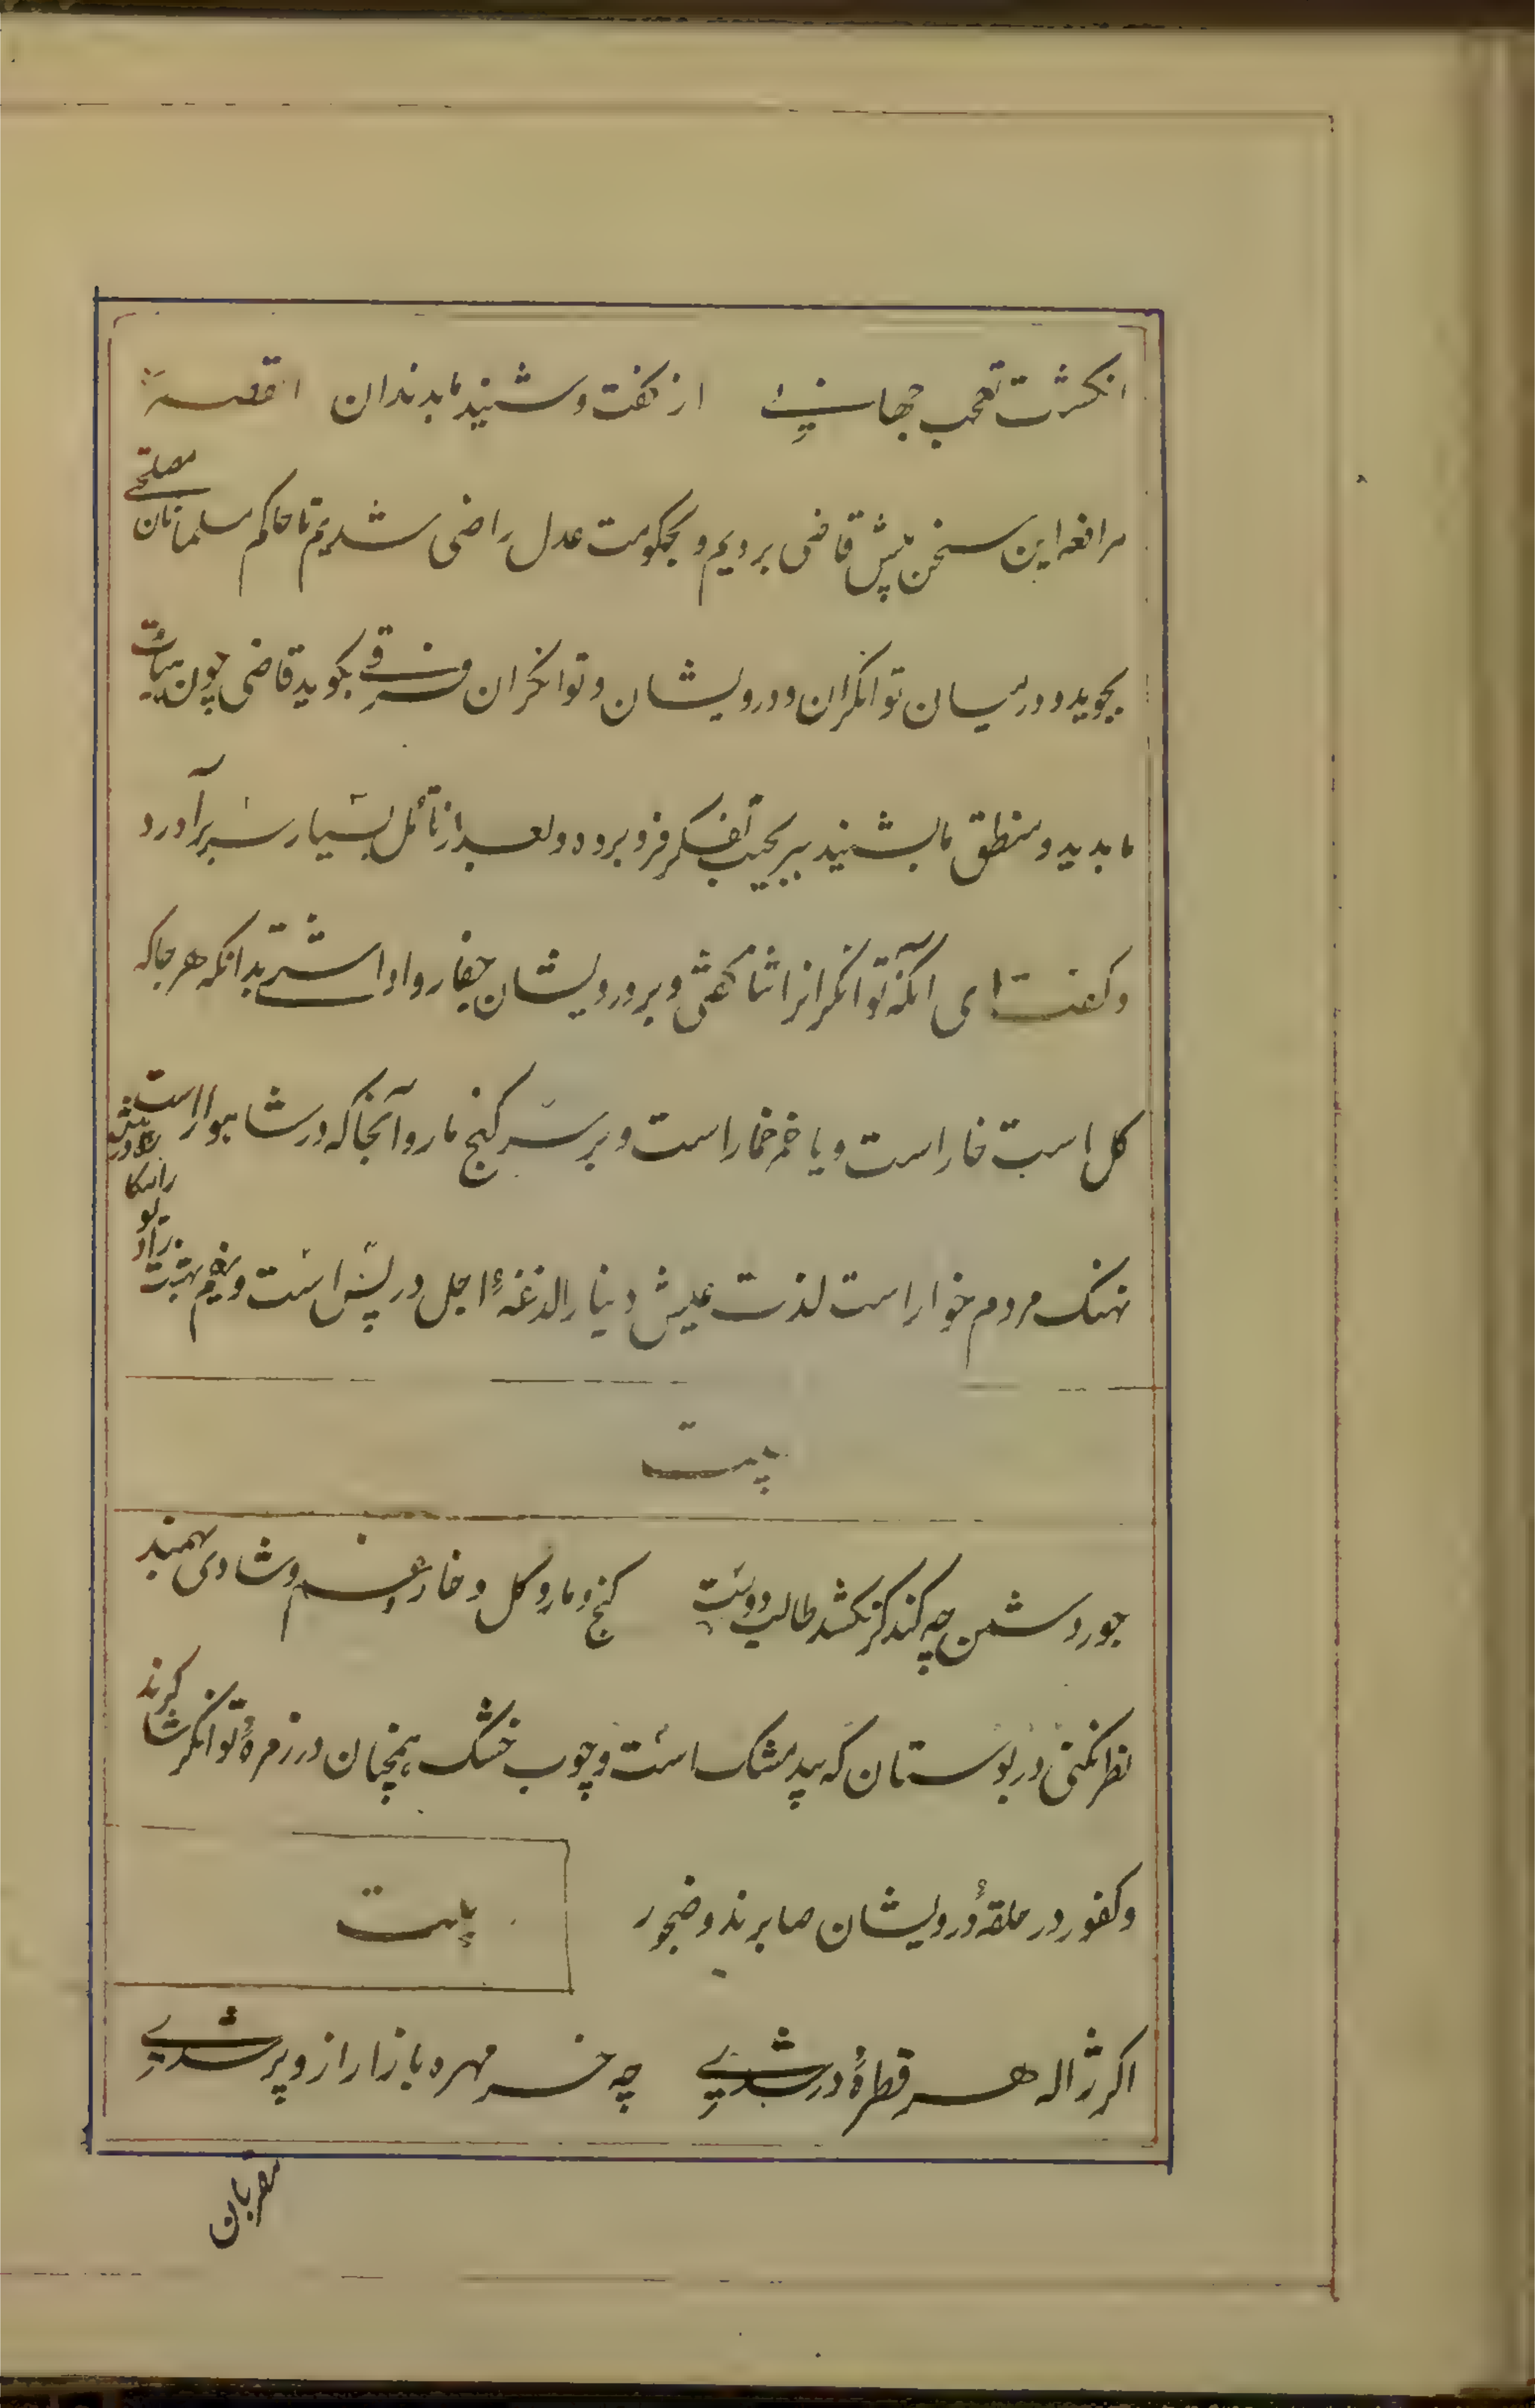 انکشت تعجب جهانی از کفت و شنید ما بدندان القصه
مرافعه این سخن پیش قاضی بردیم و بحکومت عدل راضی شدیم تا حاکم مسلمانان مصلحتی
بجوید و در میان توانکران و درویشان و توانکران فرقی بکوید قاضی چون هیأت
ما بدید و منطق ما بشنید سر بجیب تفکر فرو برده و بعد از تأمل بسیار سر برآورد
و کفت ای آنکه توانکرانرا ثنا کفتی و بر درویشان جفا روا داشتی بدانکه هر جا که
کل است خار است و با خمر خمار است و بر سر کنج مار و آنجا که در شاهوار است
نهنک مردم خوار است لذت عیش دنیا را لذغهٔ اجل در پس است و نعیم بهشت
را دیوار مکاره در پیش
بیت
جور دشمن چه کند کر نکشد طالب دوست کنج و مار و کل و خار و غم و شادی بهمند
نظر نکنی در بوستان که بید مشک است و چوب خشک همچنان در زمرهٔ توانکر شاکرند
و کفور در حلقهٔ درویشان صابرند و ضجور
بیت
اکر ژاله هر قطرهٔ در شدی چه خر مهره بازار ازو پر شدی
مقربان